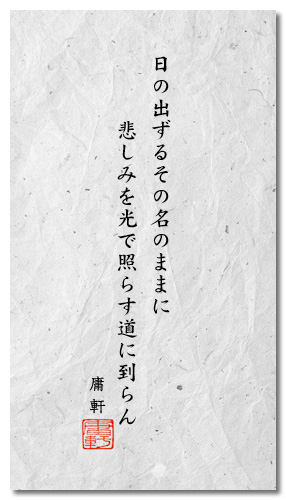 日の出ずるその名のままに
悲しみを光で照らす道に到らん
庸軒